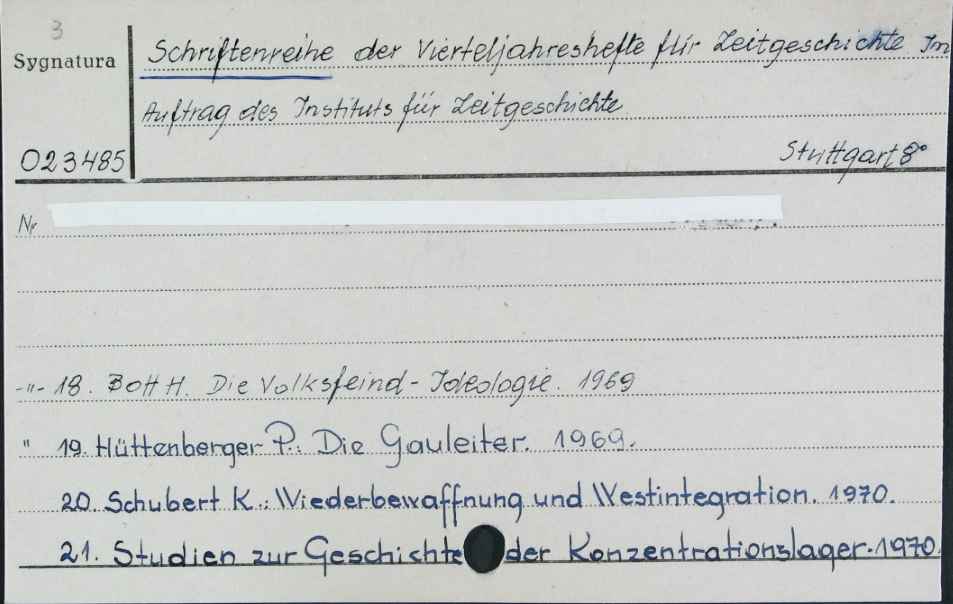 3
Sygnatura
Schriftenreihe der Vierteljahreshefte für Zeitgeschichte Im
Auftrag des Instituts für Zeitgeschichte
023485
Stuttgart 8°
Nr
-"- 18. Bott H. Die Volksfeind-Ideologie. 1969
" 19. Hüttenberger P.: Die Gauleiter. 1969.
20. Schubert K.: Wiederbewaffnung und Westintegration. 1970.
21. Studien zur Geschichte der Konzentrationslager. 1970.